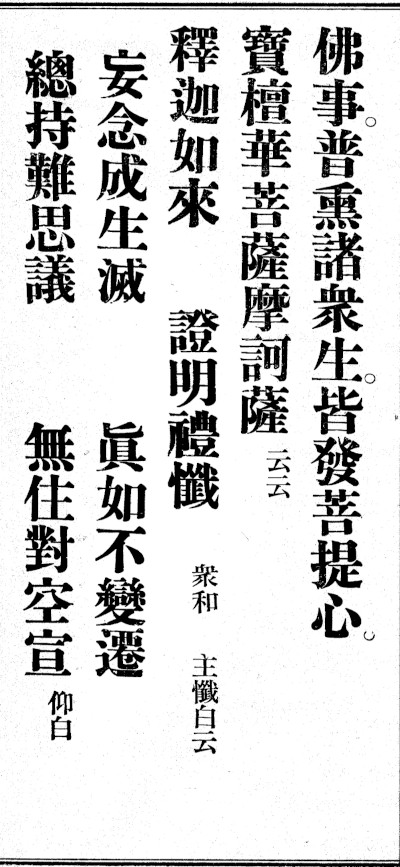 佛事。普熏諸衆生。皆發菩提心。
寶檀華菩薩摩訶薩 云云
釋迦如來 證明禮懺 衆和 主懺白云
妄念成生滅 眞如不變遷
總持難思議 無住對空宣 仰白